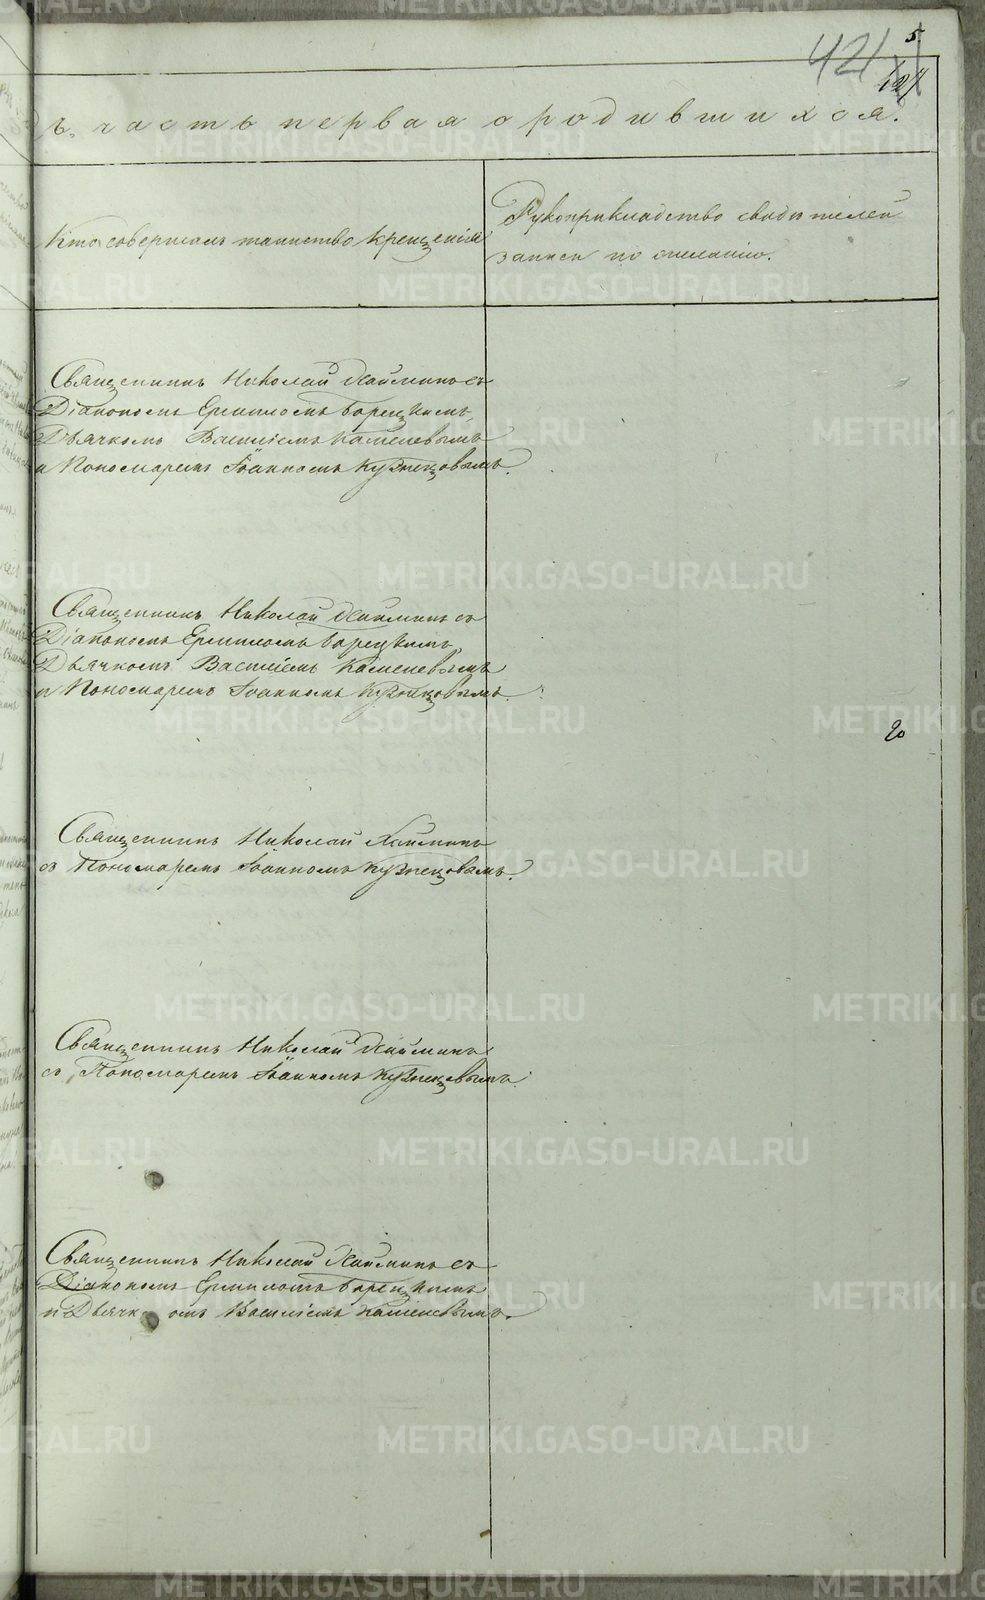 5.
421
ъ, часть первая о родившихся.
Кто совершалъ таинство крещенія
Рукоприкладство свидѣтелей
записи по желанію.
Священникъ Николай Хайминъ съ
Діакономъ Ермиломъ Борецкимъ,
Дьячкомъ Василіемъ Каменевымъ
и Пономаремъ Іоанномъ Кузнецовымъ.
Священникъ Николай Хайминъ съ
Діакономъ Ермиломъ Борецкимъ,
Дьячкомъ Василіемъ Каменевымъ
и Пономаремъ Іоанномъ Кузнецовымъ.
20
Священникъ Николай Хайминъ
съ Пономаремъ Іоанномъ Кузнецовымъ.
Священникъ Николай Хайминъ
съ Пономаремъ Іоанномъ Кузнецовымъ.
Священникъ Николай Хайминъ съ
Діакономъ Ермиломъ Борецкимъ
и Дьячкомъ Василіемъ Каменевымъ.
METRIKI.GASO-URAL.RU